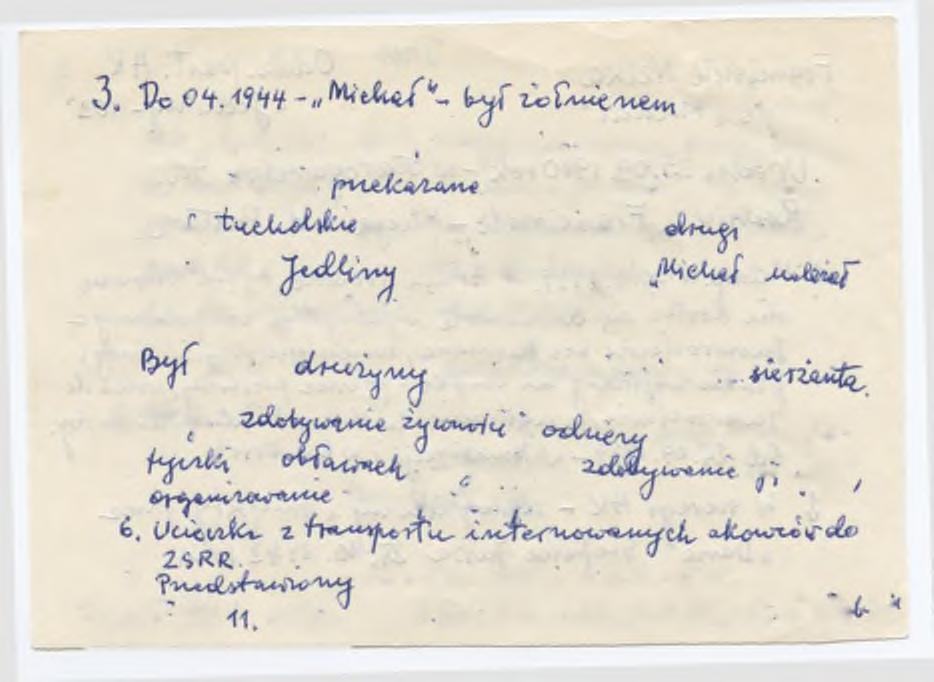 3. Do 04.1944 - „Michał" - był żołnierzem
przekazane
tucholskie drugi
Jedliny „Michał miał
Był drużyny sierżanta.
zdobywanie żywności odzieży
obławach zdobywanie
organizowanie
6. Ucieczka z transportu internowanych akowców do
ZSRR.
Przedstawiony
11.